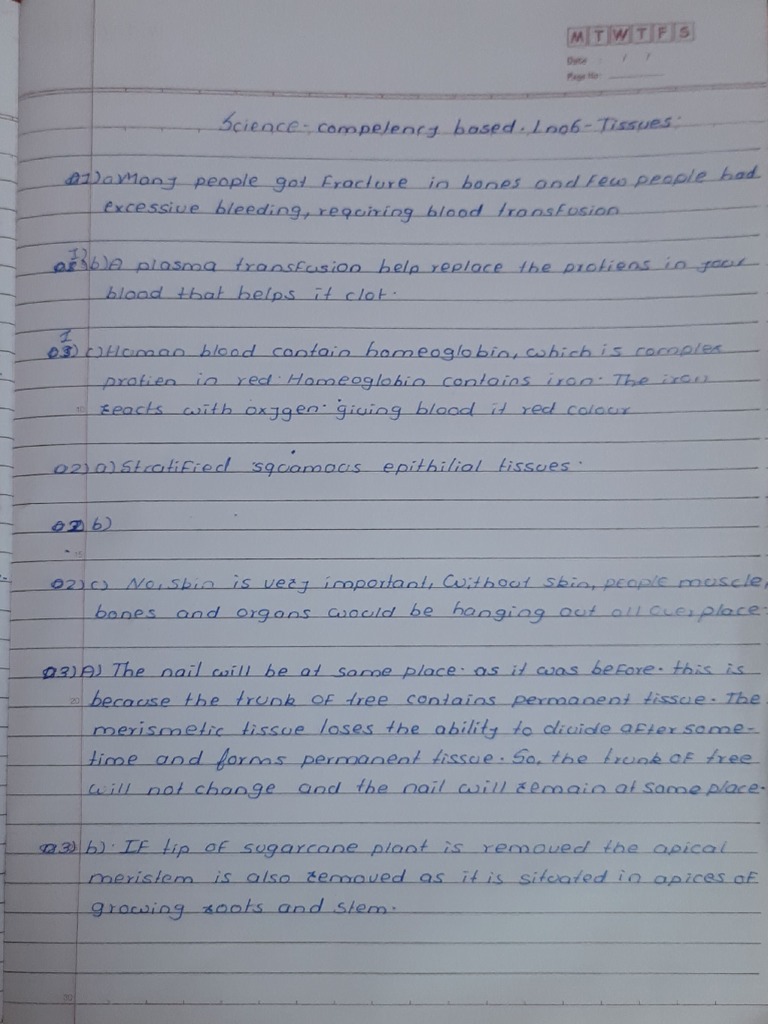 M T W T F S
Date / /
Page No:
Science- competency based. Lno6-Tissues:
Q1)a Many people got Fracture in bones and few people had
excessive bleeding, reqciring blood transfusion
I) b) A plasma transfusion help replace the protiens in your
blood that helps it clot.
I
c) Haman blood contain homeoglobin, which is complex
protien in red. Homeoglobin contains iron. The iron
10 reacts with oxygen giving blood it red colour
Q2) a) Stratified squamous epithilial tissues.
b)
15
Q2) c) No, skin is very important, Without skin, people muscle,
bones and organs would be hanging out all over place.
Q3) A) The nail will be at same place. as it was before. this is
20 because the trunk of tree contains permanent tissue. The
merismetic tissue loses the ability to divide after some-
time and forms permanent tissue. So, the trunk of tree
will not change and the nail will remain at same place.
Q3) b). If tip of sugarcane plant is removed the apical
meristem is also removed as it is situated in apices of
growing roots and stem.